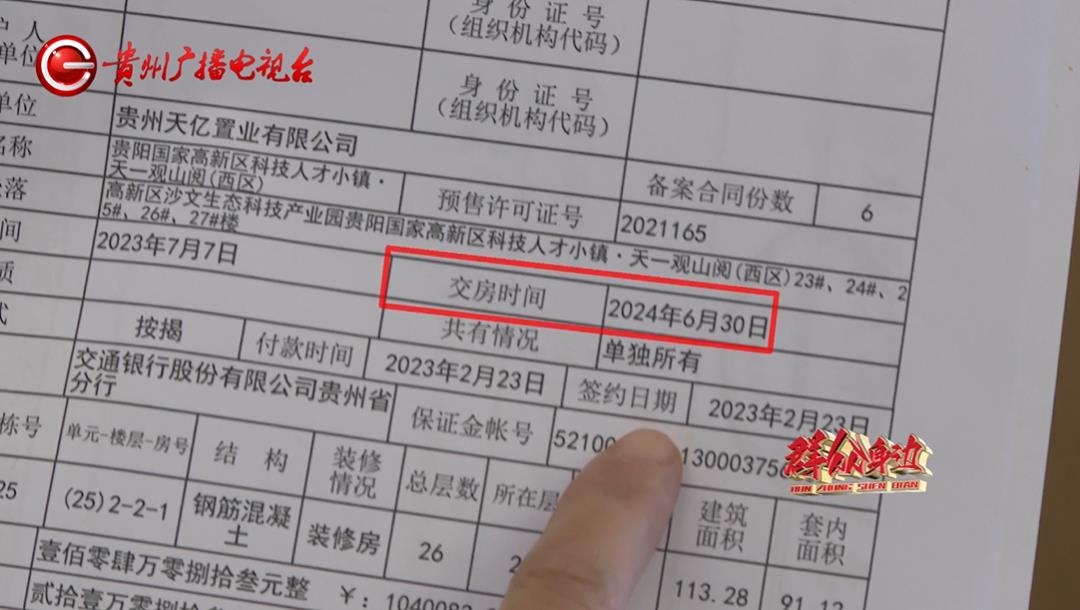 身 份 证 号
（组织机构代码）
贵州广播电视台
单位
身 份 证 号
（组织机构代码）
单位
贵州天亿置业有限公司
名称
贵阳国家高新区科技人才小镇·
天一观山阅(西区)
预售许可证号
2021165
备案合同份数
6
落
高新区沙文生态科技产业园贵阳国家高新区科技人才小镇·天一观山阅(西区)23#、24#、2
5#、26#、27#楼
间
2023年7月7日
交房时间
2024年6月30日
质
共有情况
单独所有
式
按揭
付款时间
2023年2月23日
签约日期
2023年2月23日
交通银行股份有限公司贵州省
分行
保证金帐号
52100
13000375
群众身边
QUN ZHONG SHEN BIAN
栋号
单元-楼层-房号
结 构
装修
情况
总层数
所在层
建筑
面积
套内
面积
25
(25)2-2-1
钢筋混凝
土
装修房
26
2
113.28
91.12
壹佰零肆万零捌拾叁元整
￥：1040083
贰拾壹万零捌